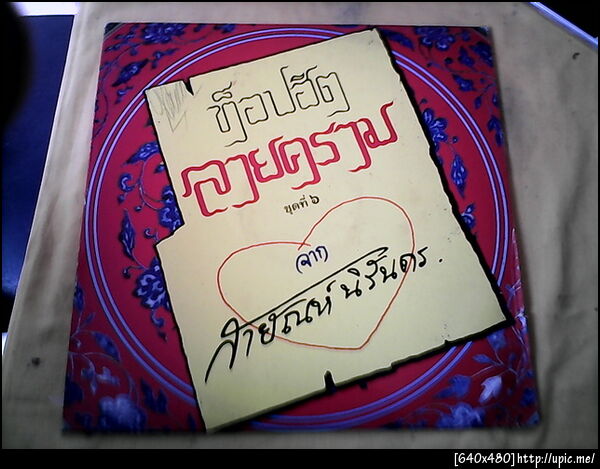 ท็อปฮิต
ลายคราม
ชุดที่ ๖
จาก
สายัณห์ นิรันดร.
[640x480]http://upic.me/